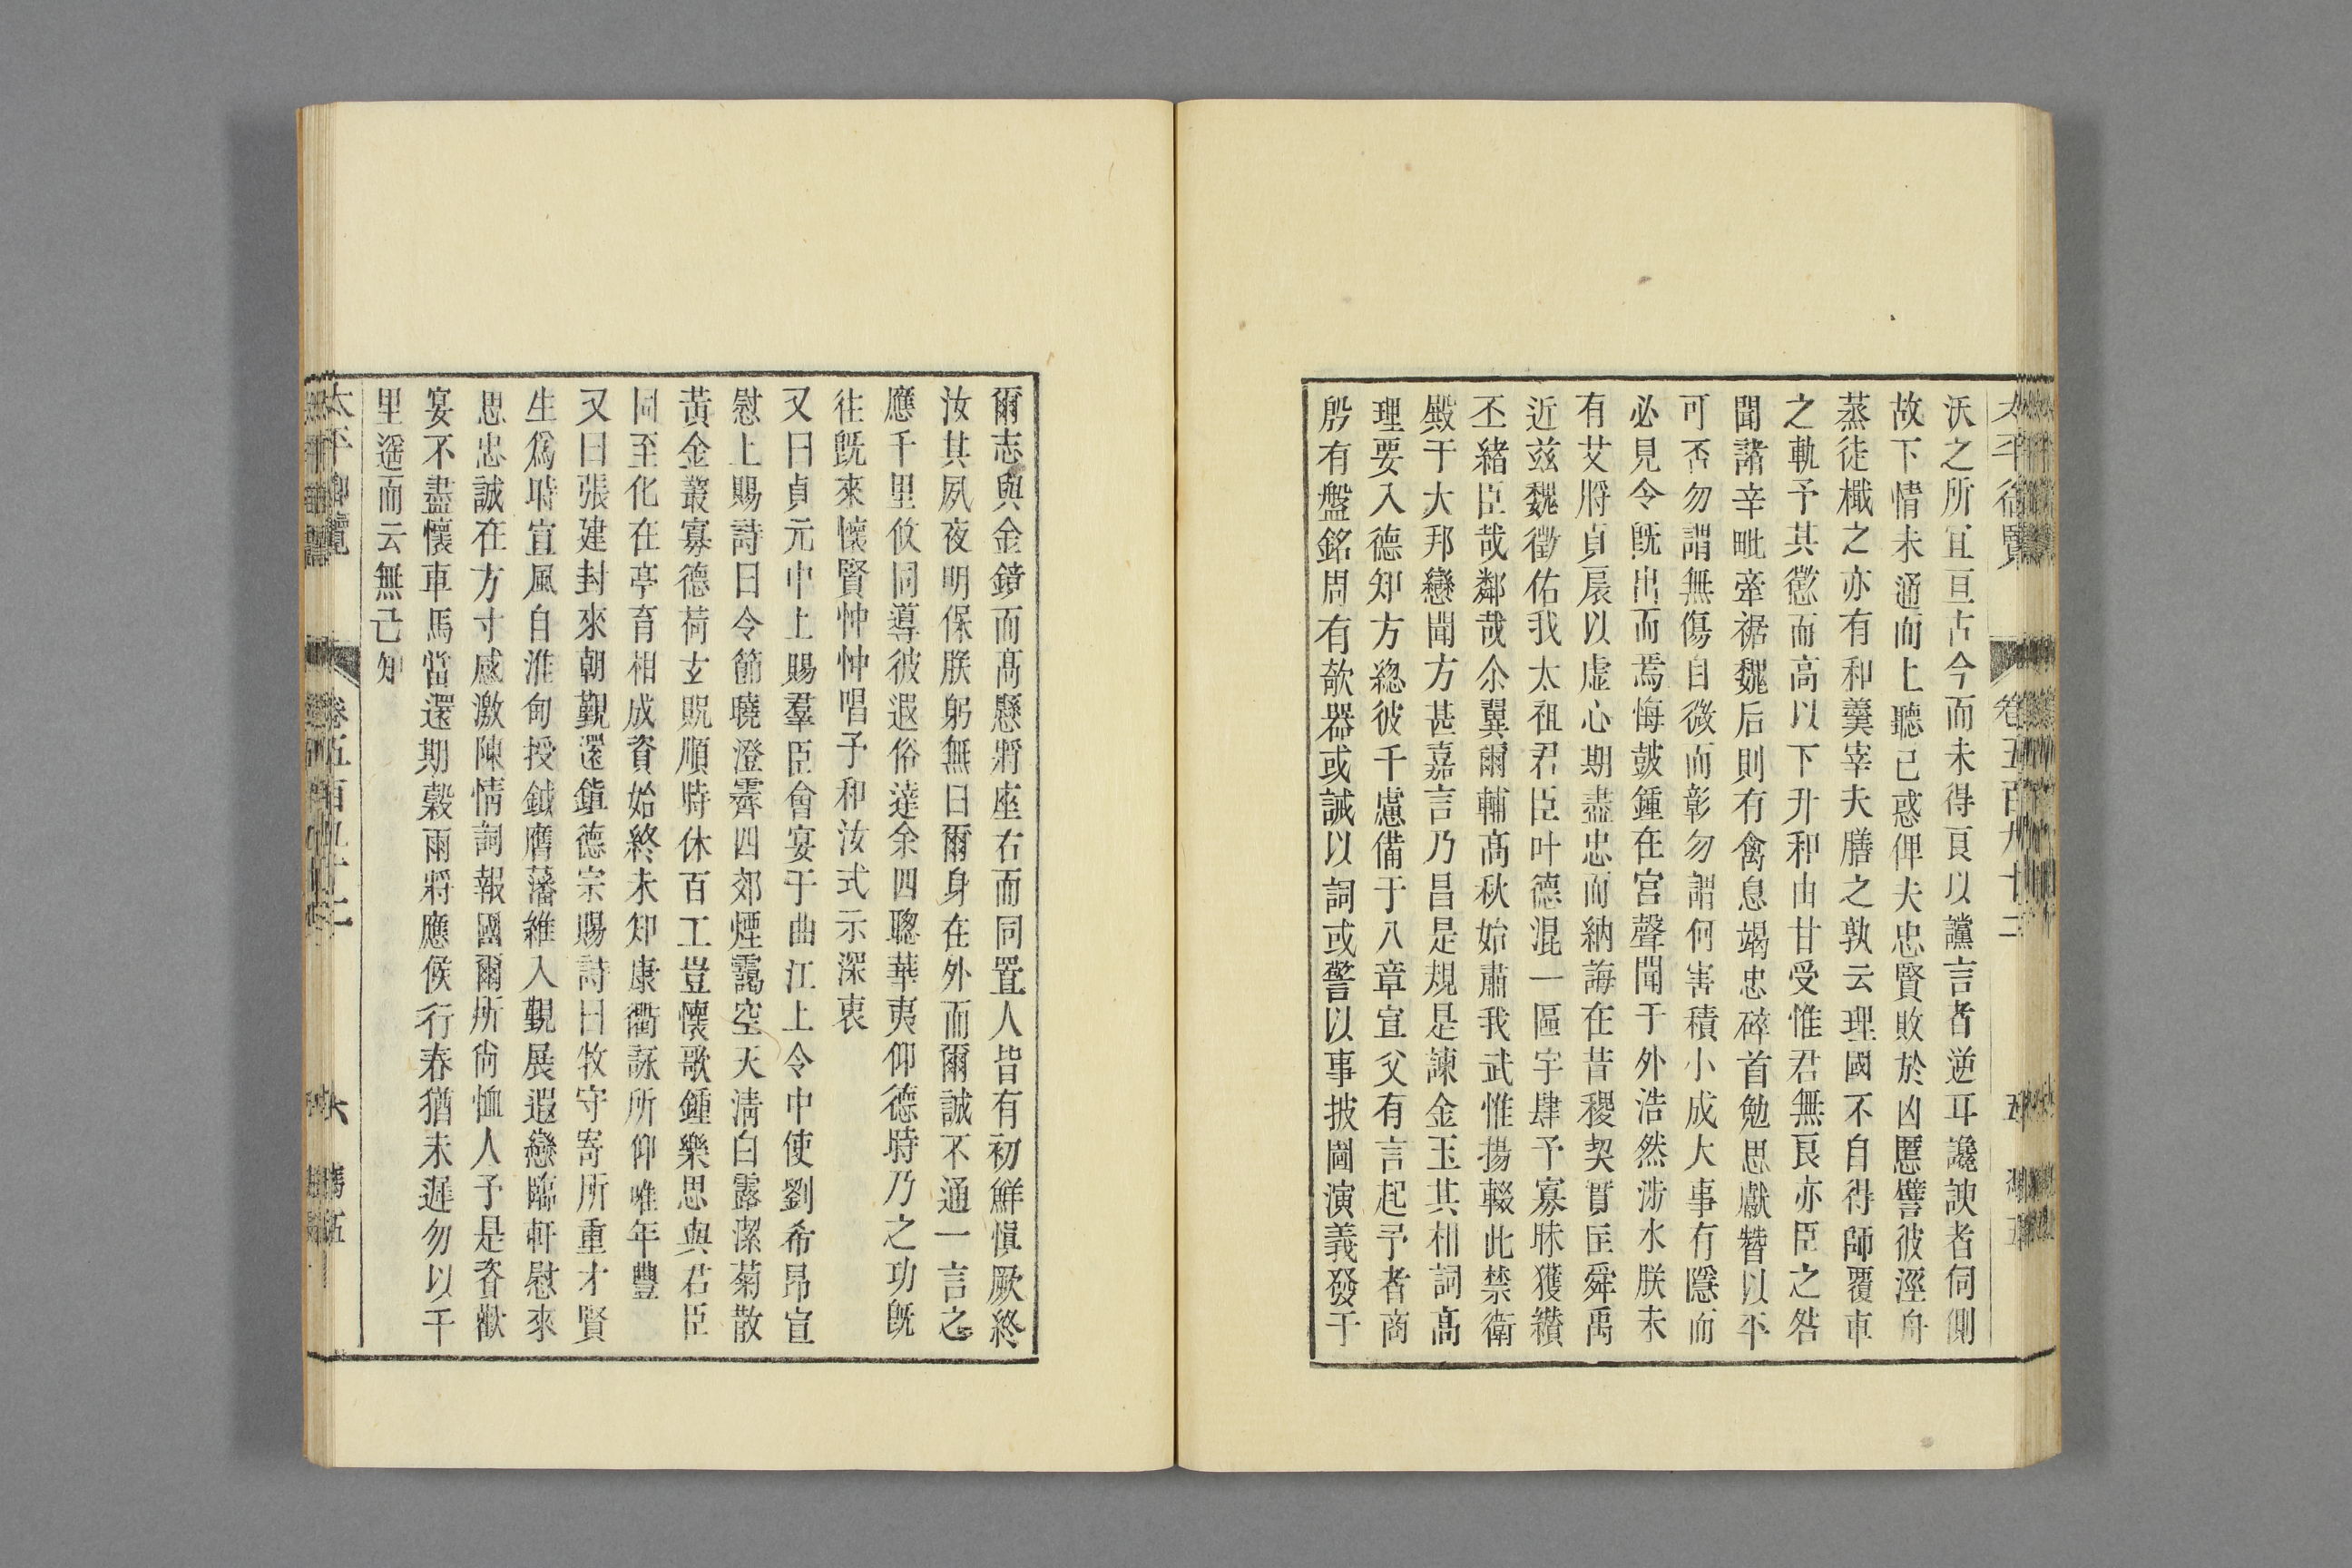 太平御覽 卷五百九十二 五
沃之所宜亘古今而未得頁以讜言者逆耳讒諛者伺側
故下情未通而上聽已惑俾夫忠賢敗於凶慝譬彼涇舟
蒸徒檝之亦有和羹宰夫膳之孰云理國不自得師覆車
之軌予其懲而高以下升和由甘受惟君無良亦臣之咎
聞諸辛毗牽裾魏后則有禽息竭忠碎首勉思獻替以平
可否勿謂無傷自微而彰勿謂何害積小成大事有隱而
必見令旣出而焉悔鼓鍾在宮聲聞于外浩然涉水朕未
有艾將貞扆以虛心期盡忠而納誨在昔稷契實匡舜禹
近兹魏徵佑我太祖君臣叶德混一區宇肆予寡昧獲纘
丕緒臣哉鄰哉余翼爾輔髙秋始肅我武惟揚輟此禁衛
殿于大邦戀聞方甚嘉言乃昌是規是諫金玉其相詞髙
理要入德知方緫彼千慮備于八章宣父有言起予者商
殷有盤銘周有欹器或誡以詞或警以事披圖演義發于
爾志與金鏡而髙懸將座右而同置人皆有初鮮愼厥終
汝其夙夜明保朕躬無曰爾身在外而爾誠不通一言之
應千里攸同導彼遐俗達余四聰華夷仰德時乃之功旣
往旣來懷賢忡忡唱予和汝式示深衷
又曰貞元中上賜羣臣會宴于曲江上令中使劉希昂宣
慰上賜詩曰令節曉澄霽四郊煙靄空天清白露潔菊散
黃金叢寡德荷玄貺順時休百工豈懷歌鍾樂思與君臣
同至化在亭育相成資始終未知康衢詠所仰唯年豐
又曰張建封來朝覲還鎮德宗賜詩曰牧守寄所重才賢
生爲時宣風自淮甸授鉞膺藩維入覲展遐戀臨軒慰來
思忠誠在方寸感激陳情詞報國爾所尙恤人予是資歡
宴不盡懷車馬當還期穀雨將應候行春猶未遲勿以千
里遥而云無已知
太平御覽 卷五百九十二 六